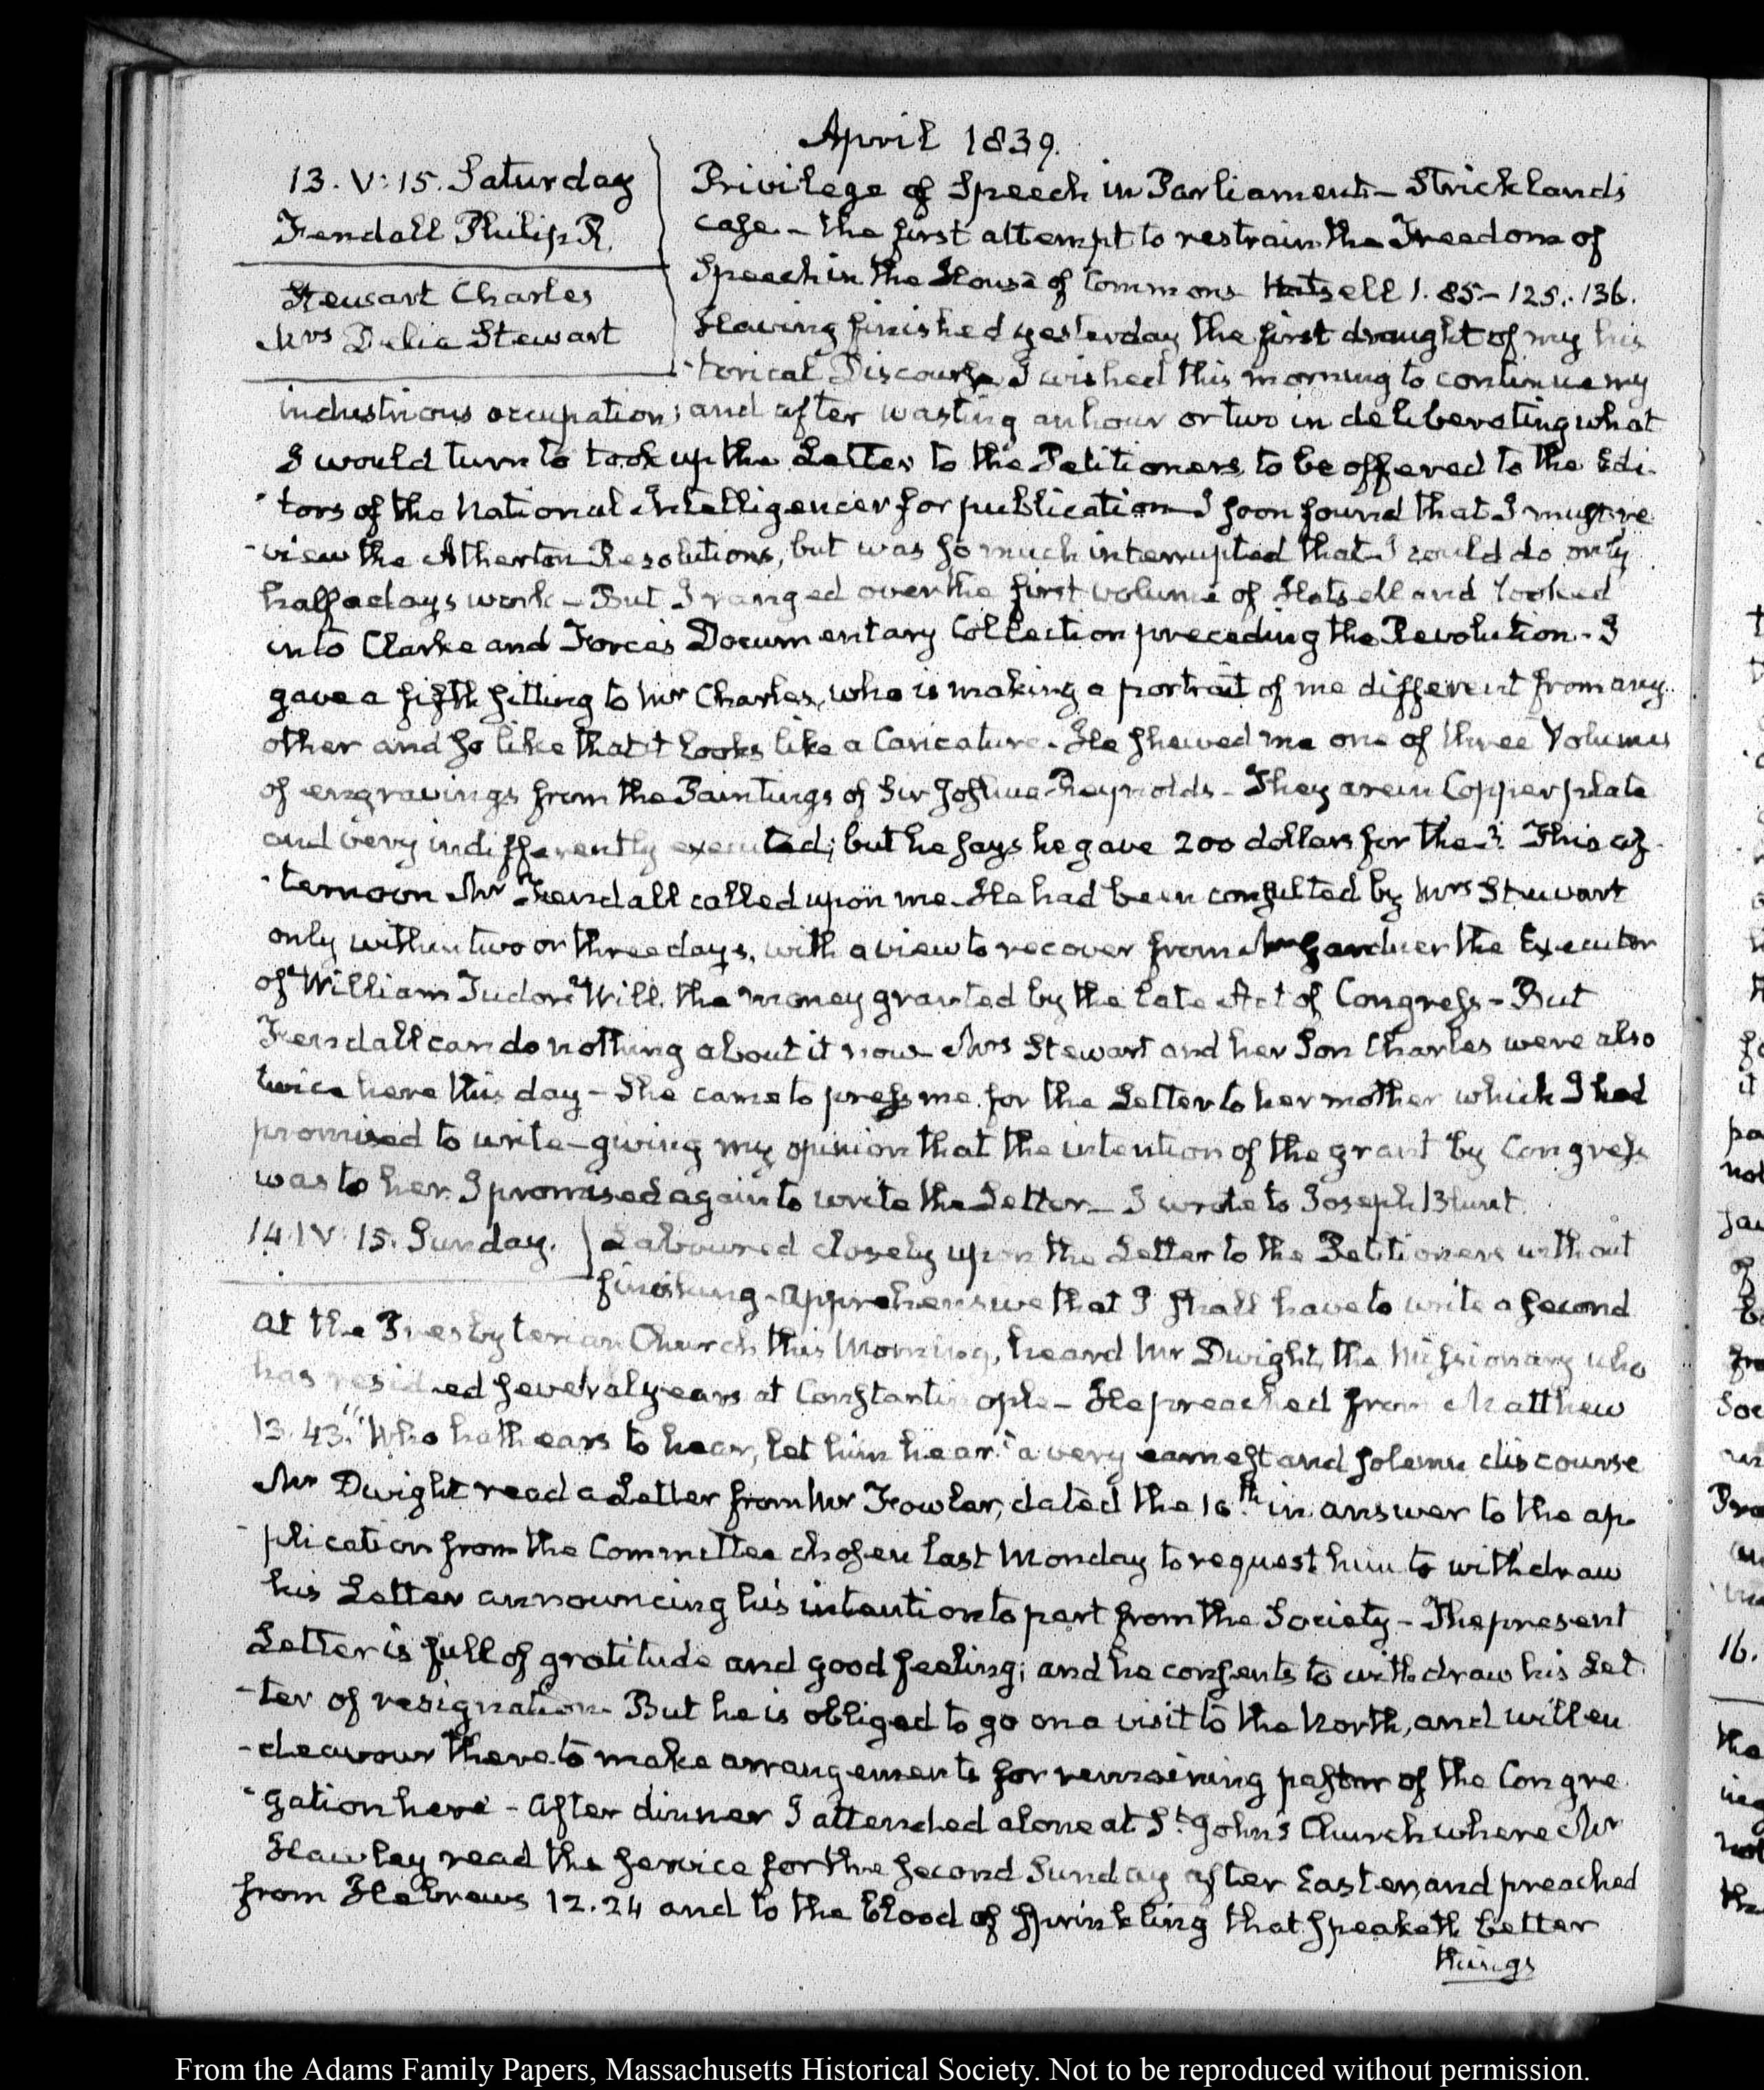 April 1839.
13. V:15. Saturday
Fendall Philip R.
Stewart Charles
Mrs Delia Stewart
Privilege of Speech in Parliament – Stricklands
case. – the first attempt to restrain the Freedom of
Speech in the House of Commons Hatsell 1. 85 – 125. 136.
Having finished yesterday the first draught of my his
-torical Discourse I wished this morning to continue my
industrious occupation; and after wasting an hour or two in deliberating what
I would turn to took up the Letter to the Petitioners, to be offered to the Edi-
-tors of the National Intelligencer for publication – I soon found that I must re
-view the Atherton Resolutions, but was so much interrupted that I could do only
half a days work – But I ranged over the first volume of Hatsell and looked
into Clarke and Force's Documentary Collection preceding the Revolution – I
gave a fifth sitting to Mr Charles, who is making a portrait of me different from any
other and so like that it looks like a Caricature. He shewed me one of three Volumes
of engravings from the Paintings of Sir Joshua Reynolds – They are in Copper plate
and very indifferently executed; but he says he gave 200 dollars for the 3. This af-
-ternoon Mr Fendall called upon me. He had been consulted by Mrs Stewart
only within two or three days, with a view to recover from Mr Gardner the Executor
of William Tudor's Will, the money granted by the late Act of Congress – But
Fendall can do nothing about it now – Mrs Stewart and her Son Charles were also
twice here this day – She came to press me for the Letter to her mother which I had
promised to write – giving my opinion that the intention of the grant by Congress
was to her. I promised again to write the Letter – I wrote to Joseph Blunt.
14. IV:15. Sunday.
Laboured closely upon the Letter to the Petitioners without
finishing – Apprehensive that I shall have to write a second
At the Presbyterian Church this Morning, heard Mr Dwight, the Missionary who
has resided several years at Constantinople – He preached from Matthew
13. 43. "Who hath ears to hear, let him hear." a very earnest and solemn discourse
Mr Dwight read a Letter from Mr Fowler, dated the 10th in answer to the ap-
-plication from the Committee chosen last Monday to request him to withdraw
his Letter announcing his intention to part from the Society – The present
Letter is full of gratitude and good feeling; and he consents to withdraw his Let
-ter of resignation – But he is obliged to go on a visit to the North, and will en
-deavour there to make arrangements for remaining pastor of the Congre
-gation here – After dinner I attended alone at St. John's Church where Mr
Hawley read the service for the second Sunday after Easter, and preached
from Hebrews 12. 24 and to the blood of sprinkling that speaketh better
things
From the Adams Family Papers, Massachusetts Historical Society. Not to be reproduced without permission.